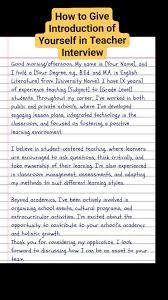 How to Give
Introduction of
Yourself in Teacher
Interview
Good morning/afternoon. My name is [Your Name], and
I hold a [Your Degree, e.g., B.Ed. and M.A. in English
Literature] from [University Name]. I have [X years]
of experience teaching [Subject] to [Grade Level]
students. Throughout my career, I've worked in both
public and private schools, where I've developed
engaging lesson plans, integrated technology in the
classroom, and focused on fostering a positive
learning environment.
I believe in student-centered teaching, where learners
are encouraged to ask questions, think critically, and
take ownership of their learning. I'm also experienced
in classroom management, assessments, and adapting
my methods to suit different learning styles.
Beyond academics, I've been actively involved in
organizing school events, cultural programs, and
extracurricular activities. I'm excited about the
opportunity to contribute to your school's academic
and holistic growth.
Thank you for considering my application. I look
forward to discussing how I can be an asset to your
team.